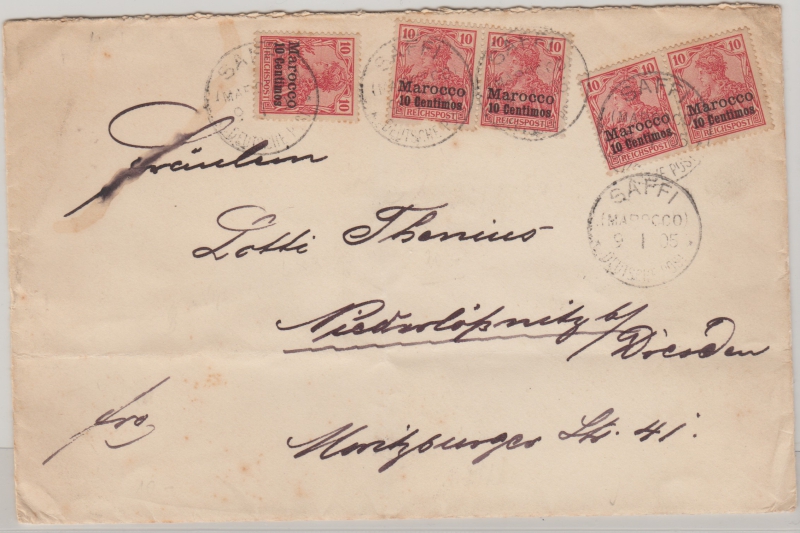 10
Marocco
10 Centimos
REICHSPOST
10 10
Marocco
10 Centimos
REICHSPOST
10 10
Marocco
10 Centimos
REICHSPOST
10
Marocco
10 Centimos
REICHSPOST
10 10
Marocco
10 Centimos
REICHSPOST
SAFFI
SAFFI
SAFFI
(MAROCCO)
9 1 05
* DEUTSCHE POST *
Fräulein
Lotti Thenius
Niederlößnitz b/
Dresden
Moritzburger Str. 41.